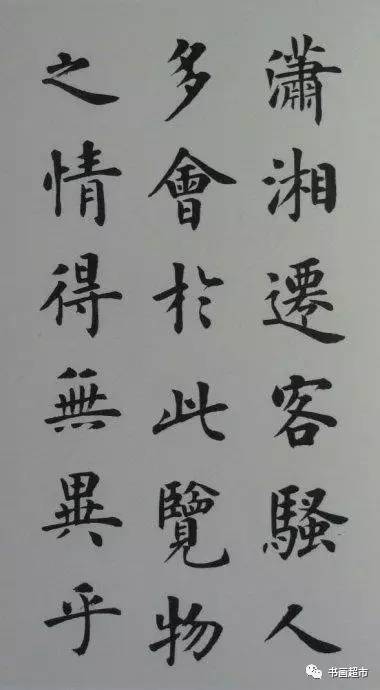 瀟湘遷客騷人
多會於此覽物
之情得無異乎
书画超市